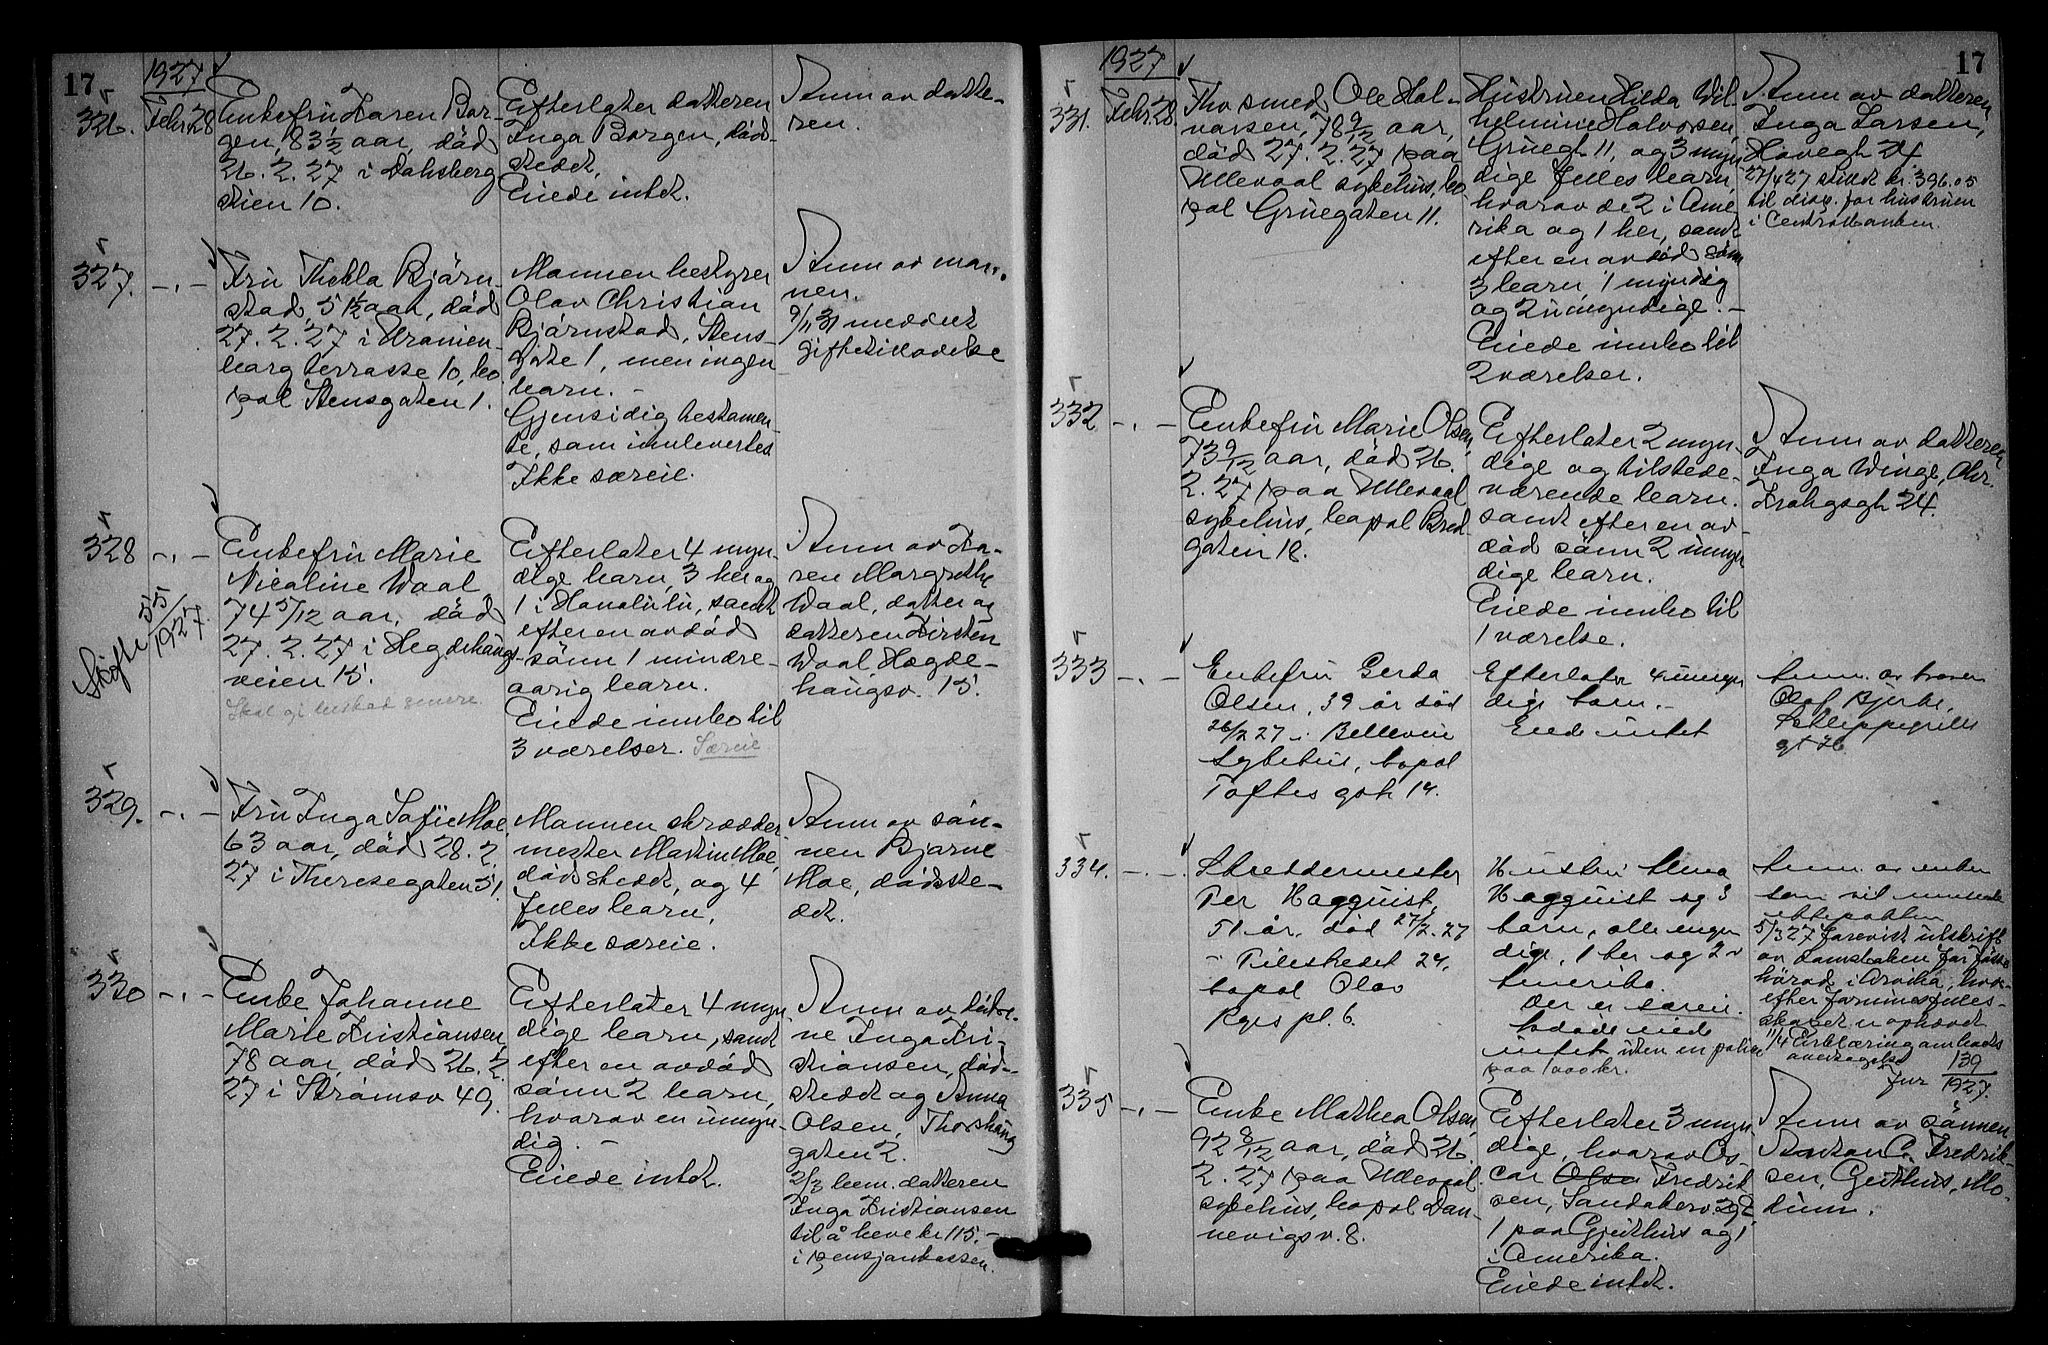 17
1927
326.
Febr. 28
Enkefru Karen Bor-
gen, 83 1/2 aar, död
26. 2. 27 i Dalsberg
stien 10.
Efterlater datteren
Inga Borgen, död-
stedet.
Eiede intet.
Anm av datte-
ren.
327.
-.-
Fru Thekla Bjørn-
stad, 51 1/2 aar, död
27. 2. 27 i Uranien-
borg terrasse 10, bo
pæl Stensgaten 1.
Mannen bestyrer
Olav Christian
Bjørnstad, Stens-
gate 1, men ingen
barn. -
Gjensidig testamen-
te, som innlevertes
Ikke særeie.
Anm av man-
nen.
9/11 31 meddelt
giftetilladelse
328
-.-
Skifte 55/1927.
Enkefru Marie
Nicoline Waal
74 5/12 aar, död
27. 2. 27 i Hegdehaugs-
veien 15.
Skal gi besked senere.
Efterlater 4 myn-
dige barn, 3 her og
1 i Honolulu, samt
efter en avdöd
sönn 1 mindre-
aarig barn.
Eiede innbo til
3 værelser. Særeie
Anm av Ka-
ren Margrethe
Waal, datter og
datteren Kirsten
Waal Hægde-
haugsv. 15.
329.
-.-
Fru Inga Sofie Moe,
63 aar, död 28. 2.
27 i Theresegaten 51.
Mannen skrædder
mester Martin Moe,
dödstedet, og 4
felles barn,
Ikke særeie.
Anm av sön-
nen Bjarne
Moe, dödste-
det.
330
-.-
Enke Johanne
Marie Kristiansen,
78 aar, död 26. 2.
27 i Strömsv 49.
Efterlater 4 myn
dige barn, samt
efter en avdöd
sönn 2 barn,
hvorav en umyn-
dig. -
Eiede intet.
Anm av dötre-
ne Inga Kri-
stiansen, död-
stedet og Anna
Olsen, Thorshaug
gaten 2.
2/3 bem. datteren
Inga Kristiansen
til å heve kr 115. -
i pensjonkassen.
17
1927
331.
Febr. 28
Fhv smed Ole Hal-
varsen, 78 9/12 aar,
död 27. 2. 27 paa
Ullevaal sykehus, bo
pæl Gruegaten 11.
Hustruen Hilda Wil-
helmine Halvorsen
Gruegt 11, og 3 myn
dige felles barn,
hvorav de 2 i Ame
rika og 1 her, samt
efter en avdöd sönn
3 barn, 1 myndig
og 2 umyndige. -
Eiede innbo til
2 værelser.
Anm av datteren
Inga Larsen,
Havegt 24
27/4 27 stillet kr. 396.05
til disp. for hustruen
i Centralbanken.
332
-.-
Enkefru Marie Olsen,
73 9/12 aar, död 26.
2. 27 paa Ullevaal
sykehus, bopæl Bred
gaten 18.
Efterlater 2 myn-
dige og tilstede-
værende barn.
samt efter en av-
död sönn 2 umyn
dige barn.
Eiede innbo til
1 værelse.
Anm av datteren
Inga Winge, Chr.
Krohgsgt 24.
333
-.-
Enkefru Gerda
Olsen, 39 år död
26/2 27 i Bellevue
sykehus, bopæl
Toftes gate 14.
Efterlater 4 umyn
dige barn. -
Eiede intet
Anm. av broren
Olaf Bjerke,
Schleppegrells
gt 26.
334.
-.-
Skreddermester
Per Hagquist,
51 år, död 27/2. 27
i Pilestredet 24,
bopæl Olav
Kyrs pl. 6.
Hustru Alma
Hagquist og 3
barn, alle myn
dige, 1 her og 2 i
Amerika.
Der er særeie.
Avdöde eiede
intet uten en police
paa 1000 kr.
Anm. av enken
som vil
5/3 27 forevist utskrift
av domsboken for
härad i Arvika, hvor-
efter formuesfelles-
skabet er ophævet
1/4 Erklæring om boets
overtagelse
Jnr 139/1927.
335
-.-
Enke Mathea Olsen,
92 8/12 aar, död 26.
2. 27 paa Ullevaal
sykehus, bopæl Dan-
nevigsv. 8.
Efterlater 3 myn
dige, hvorav Os-
car Olsen Fredrik
sen, Sandakerv.
1 paa Gjeithus og 1
i Amerika.
Eiede intet.
Anm av sönnen
Anton C. Fredrik-
sen, Geithus, Mo-
dum.